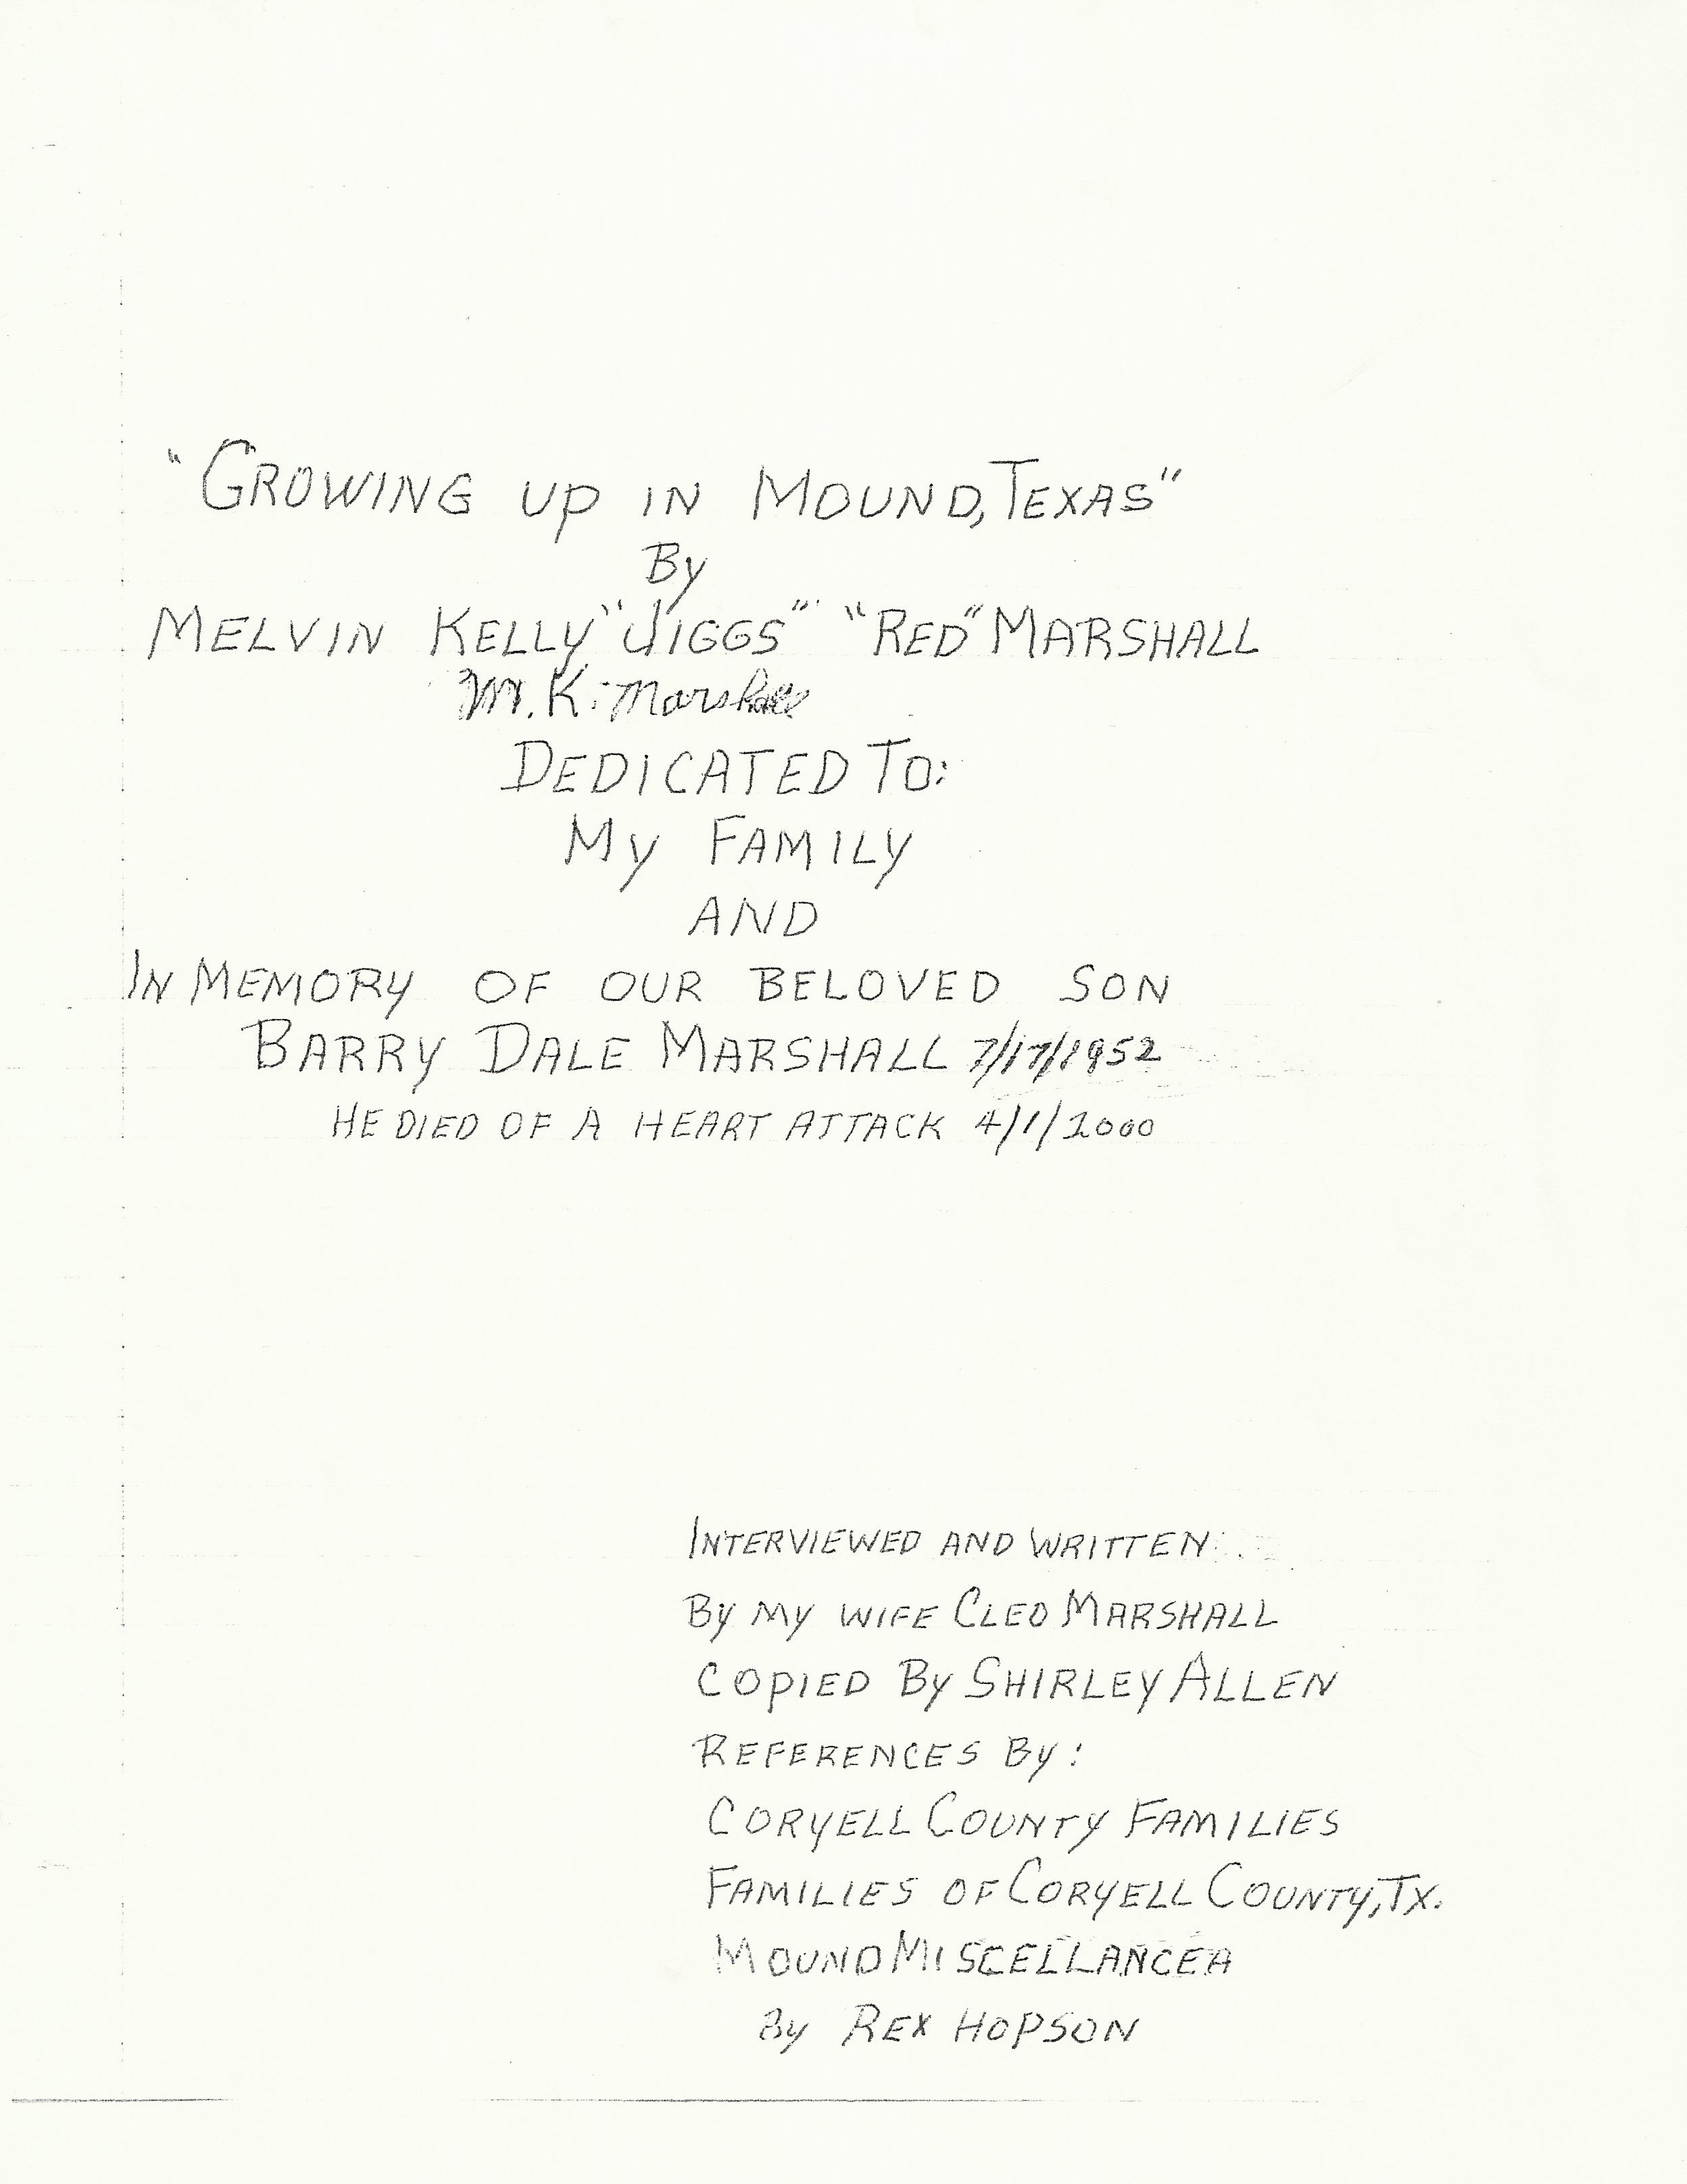 "GROWING UP IN MOUND, TEXAS"
By
MELVIN KELLY "JIGGS" "RED" MARSHALL
M. K. Marshall
DEDICATED TO:
MY FAMILY
AND
IN MEMORY OF OUR BELOVED SON
BARRY DALE MARSHALL 7/17/1952
HE DIED OF A HEART ATTACK 4/1/2000
INTERVIEWED AND WRITTEN
By MY WIFE CLEO MARSHALL
COPIED By SHIRLEY ALLEN
REFERENCES By:
CORYELL COUNTY FAMILIES
FAMILIES OF CORYELL COUNTY, TX.
MOUND MISCELLANCEA
By REX HOPSON